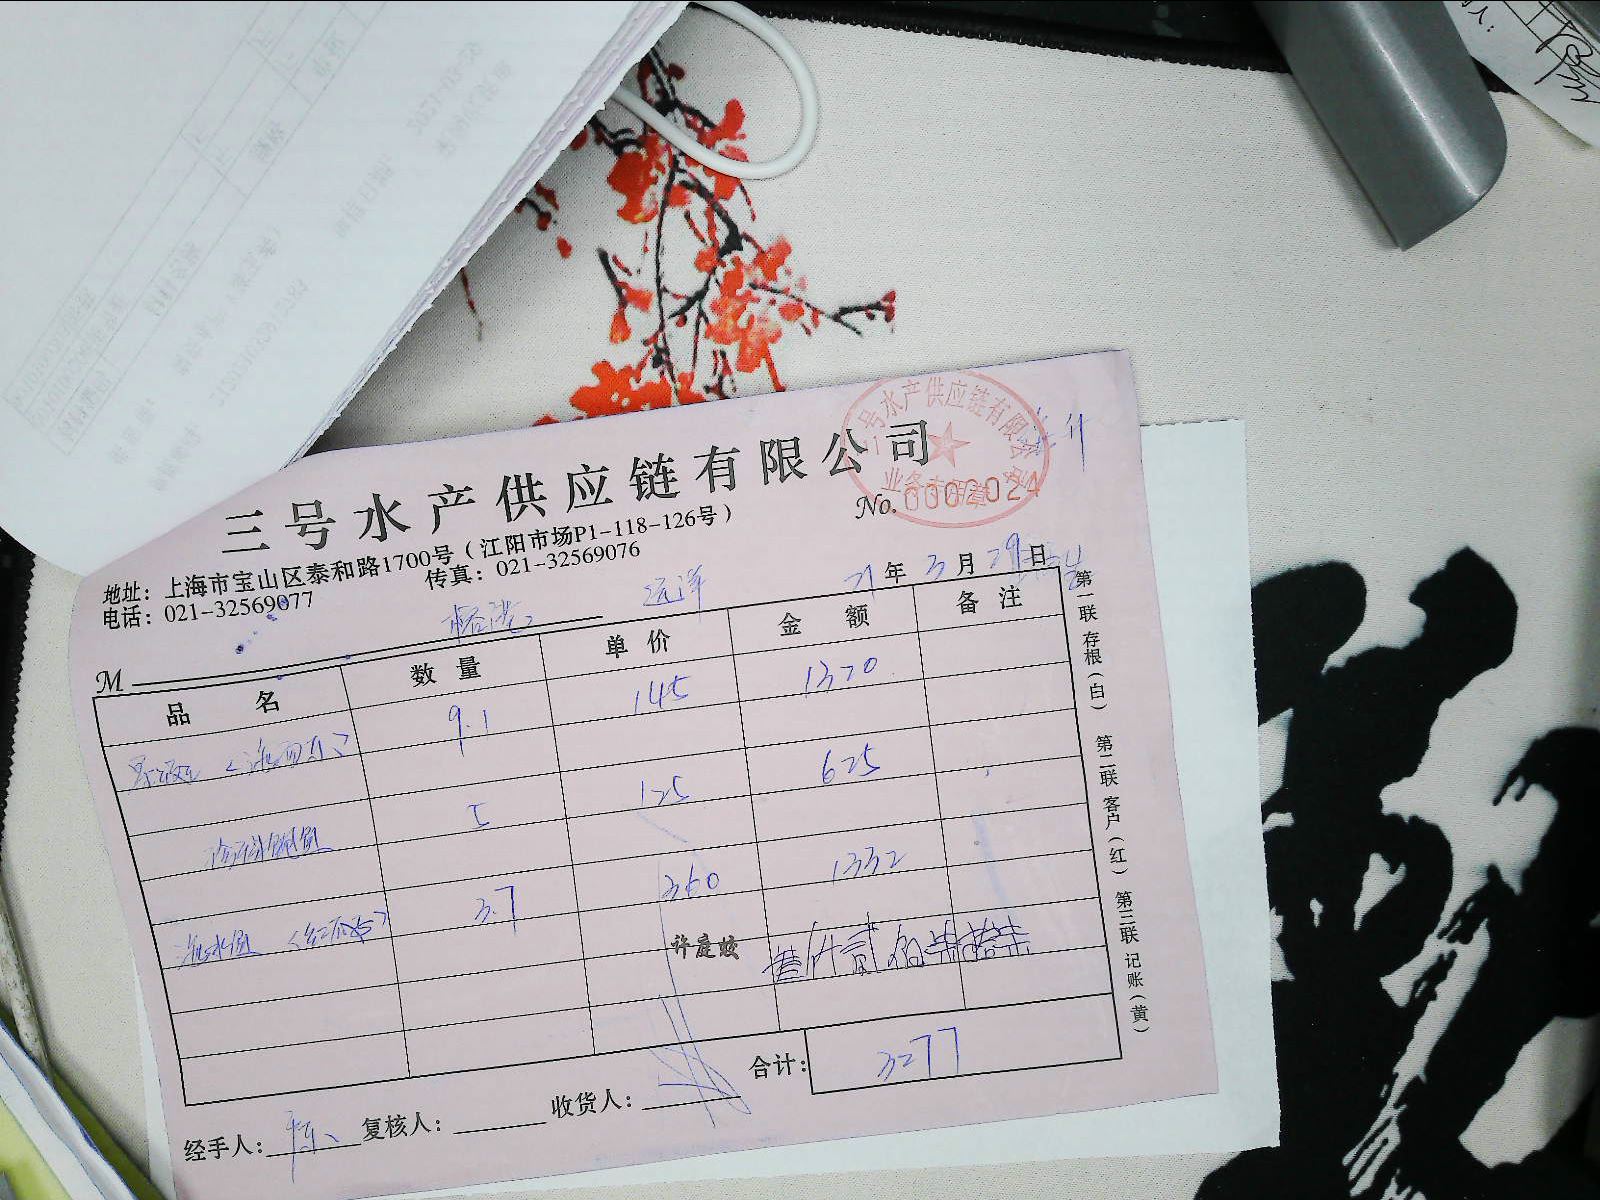 三号水产供应链有限公司
三号水产供应链有限公司
业务专用章
No. 0002024
地址：上海市宝山区泰和路1700号（江阳市场P1-118-126号）
电话：021-32569077 传真：021-32569076
远洋
21年3月29日
M
品名 数量 单价 金额 备注
9.1 145 1320
5 125 625
3.7 360 1332
许庭姣
叁仟贰佰柒拾柒
合计：3277
经手人：陈 复核人： 收货人：
第一联 存根（白） 第二联 客户（红） 第三联 记账（黄）